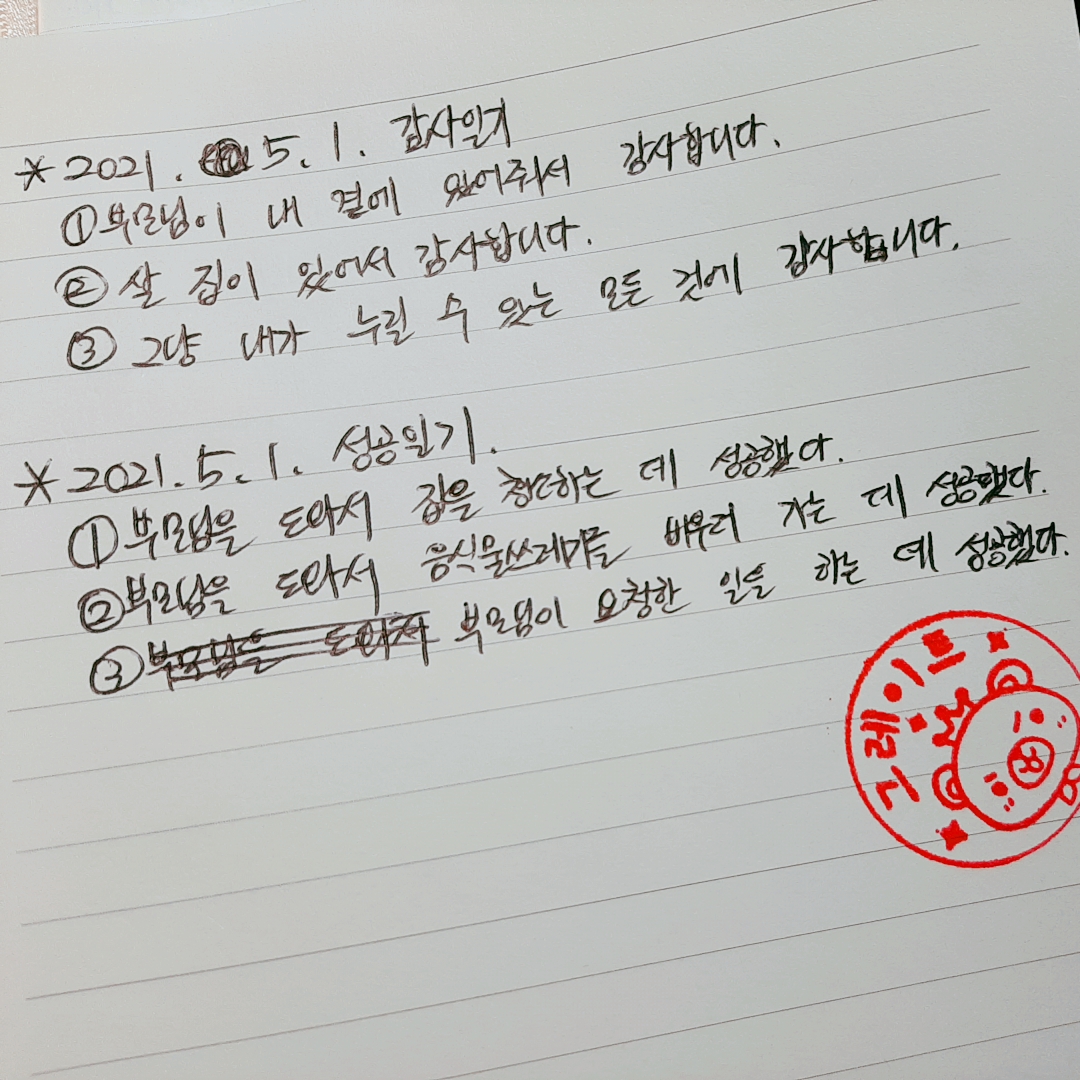 * 2021. 5. 1. 감사일기
① 부모님이 내 곁에 있어줘서 감사합니다.
② 살 집이 있어서 감사합니다.
③ 그냥 내가 누릴 수 있는 모든 것에 감사합니다.
* 2021. 5. 1. 성공일기.
① 부모님을 도와서 집을 청소하는 데 성공했다.
② 부모님을 도와서 음식물쓰레기를 버우러 가는 데 성공했다.
③ 부모님을 도와서 부모님이 요청한 일을 하는 데 성공했다.
그레이트